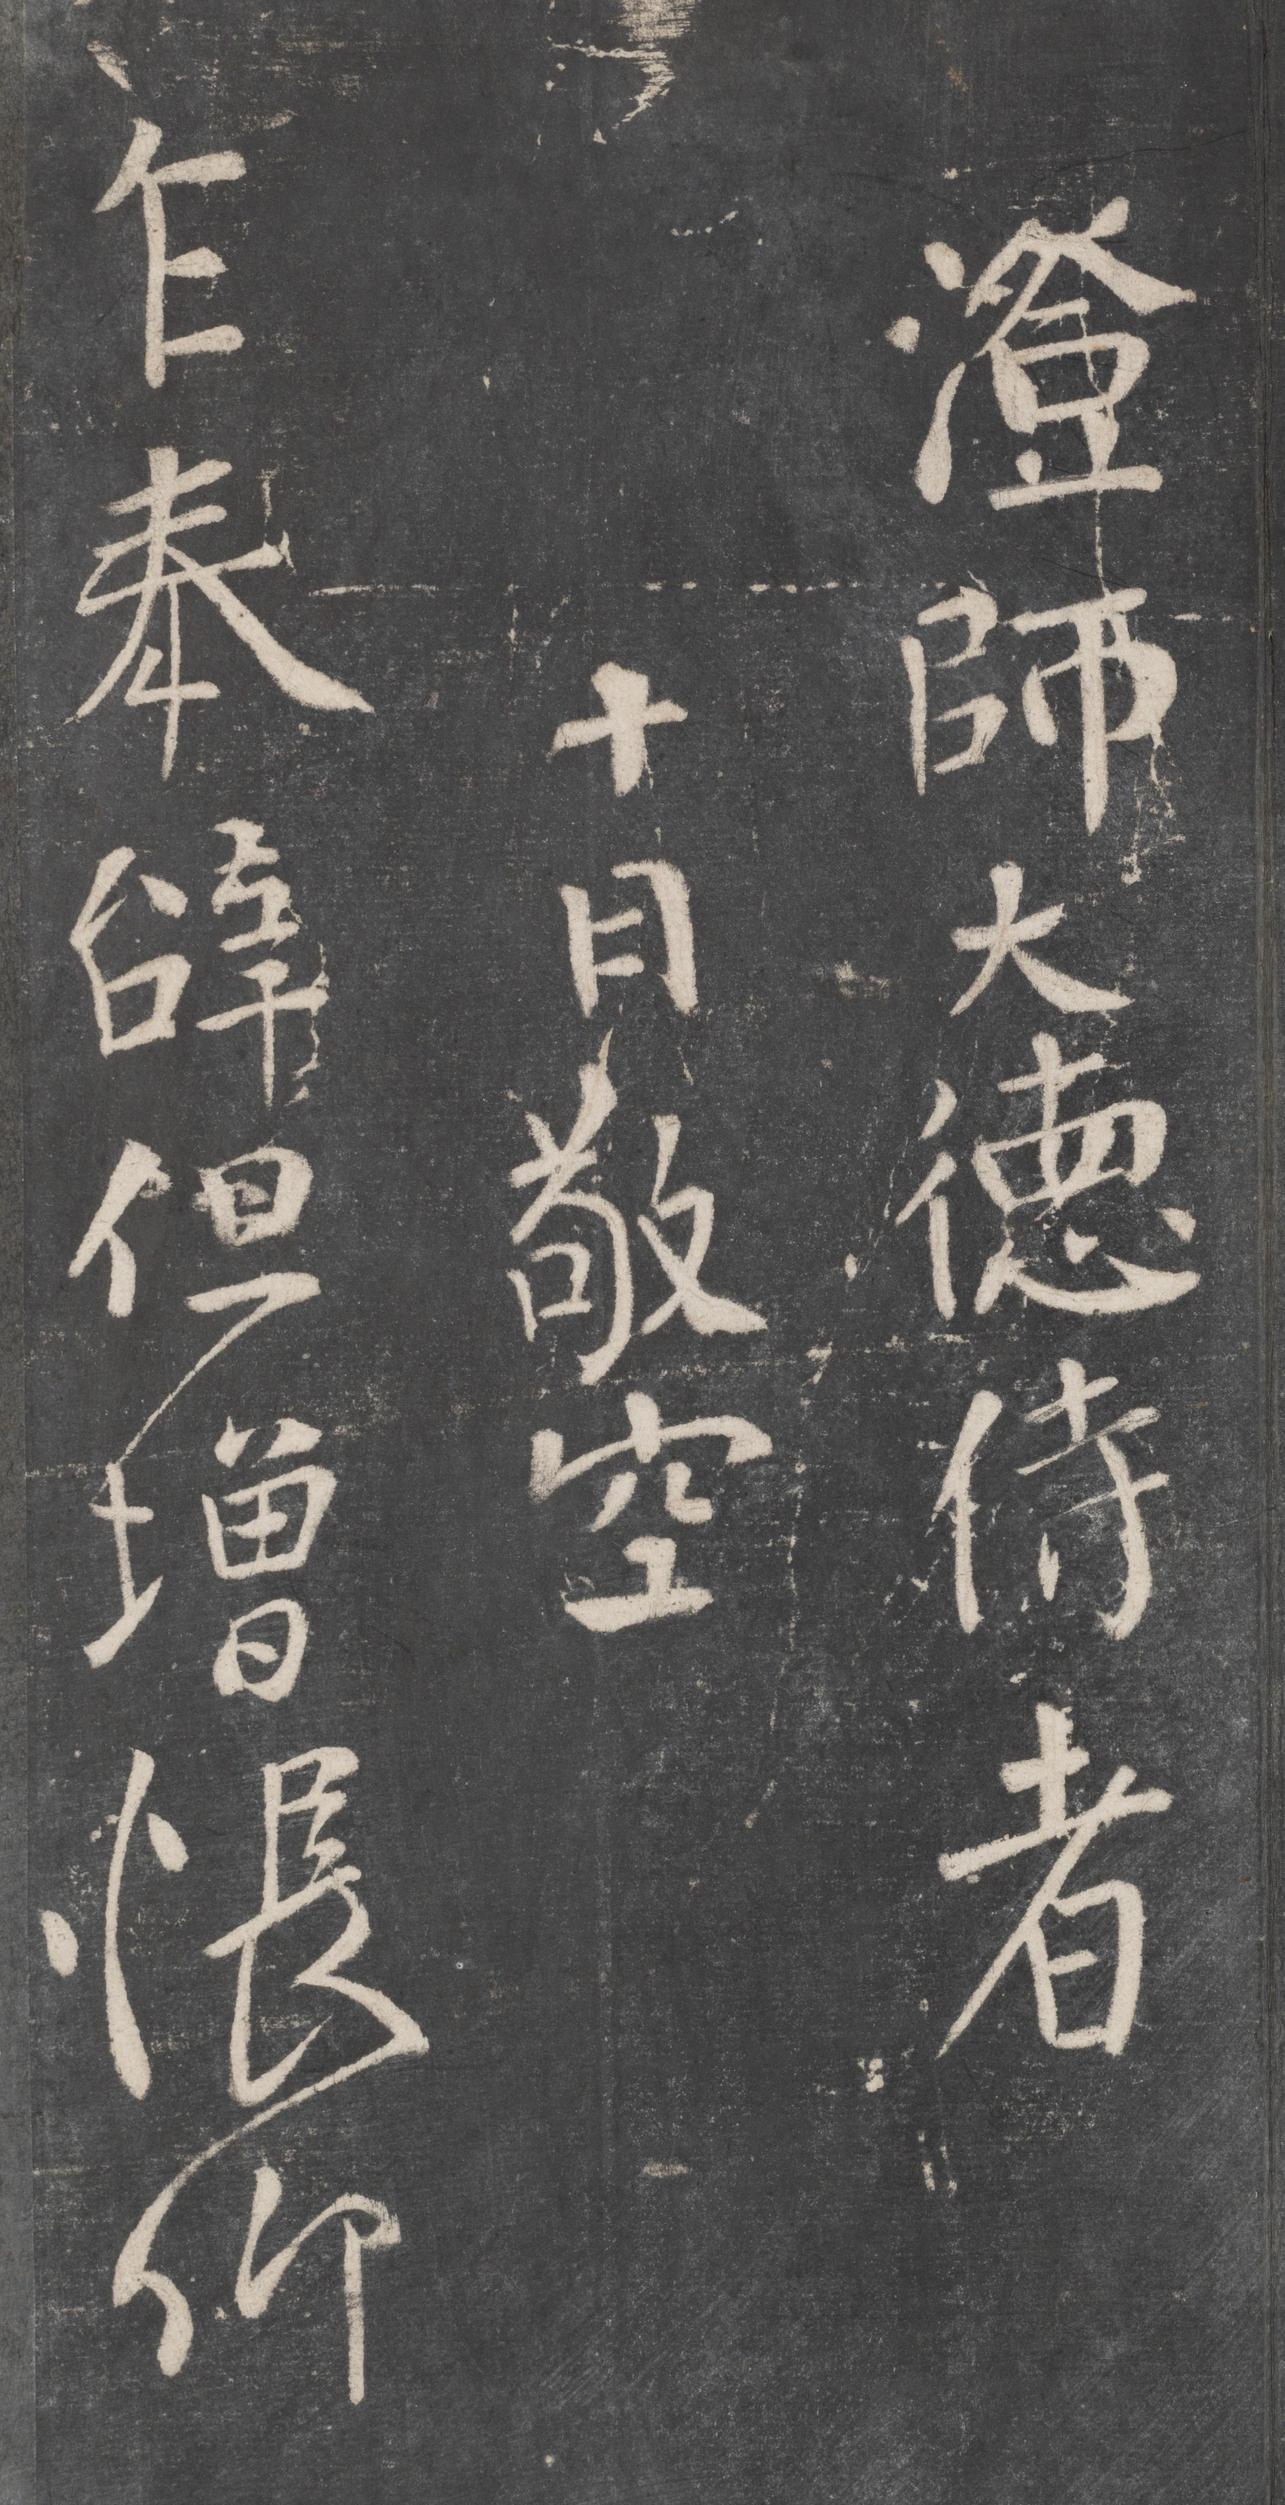 澄師大德侍者
十月敬空
乍奉辝但增悵仰